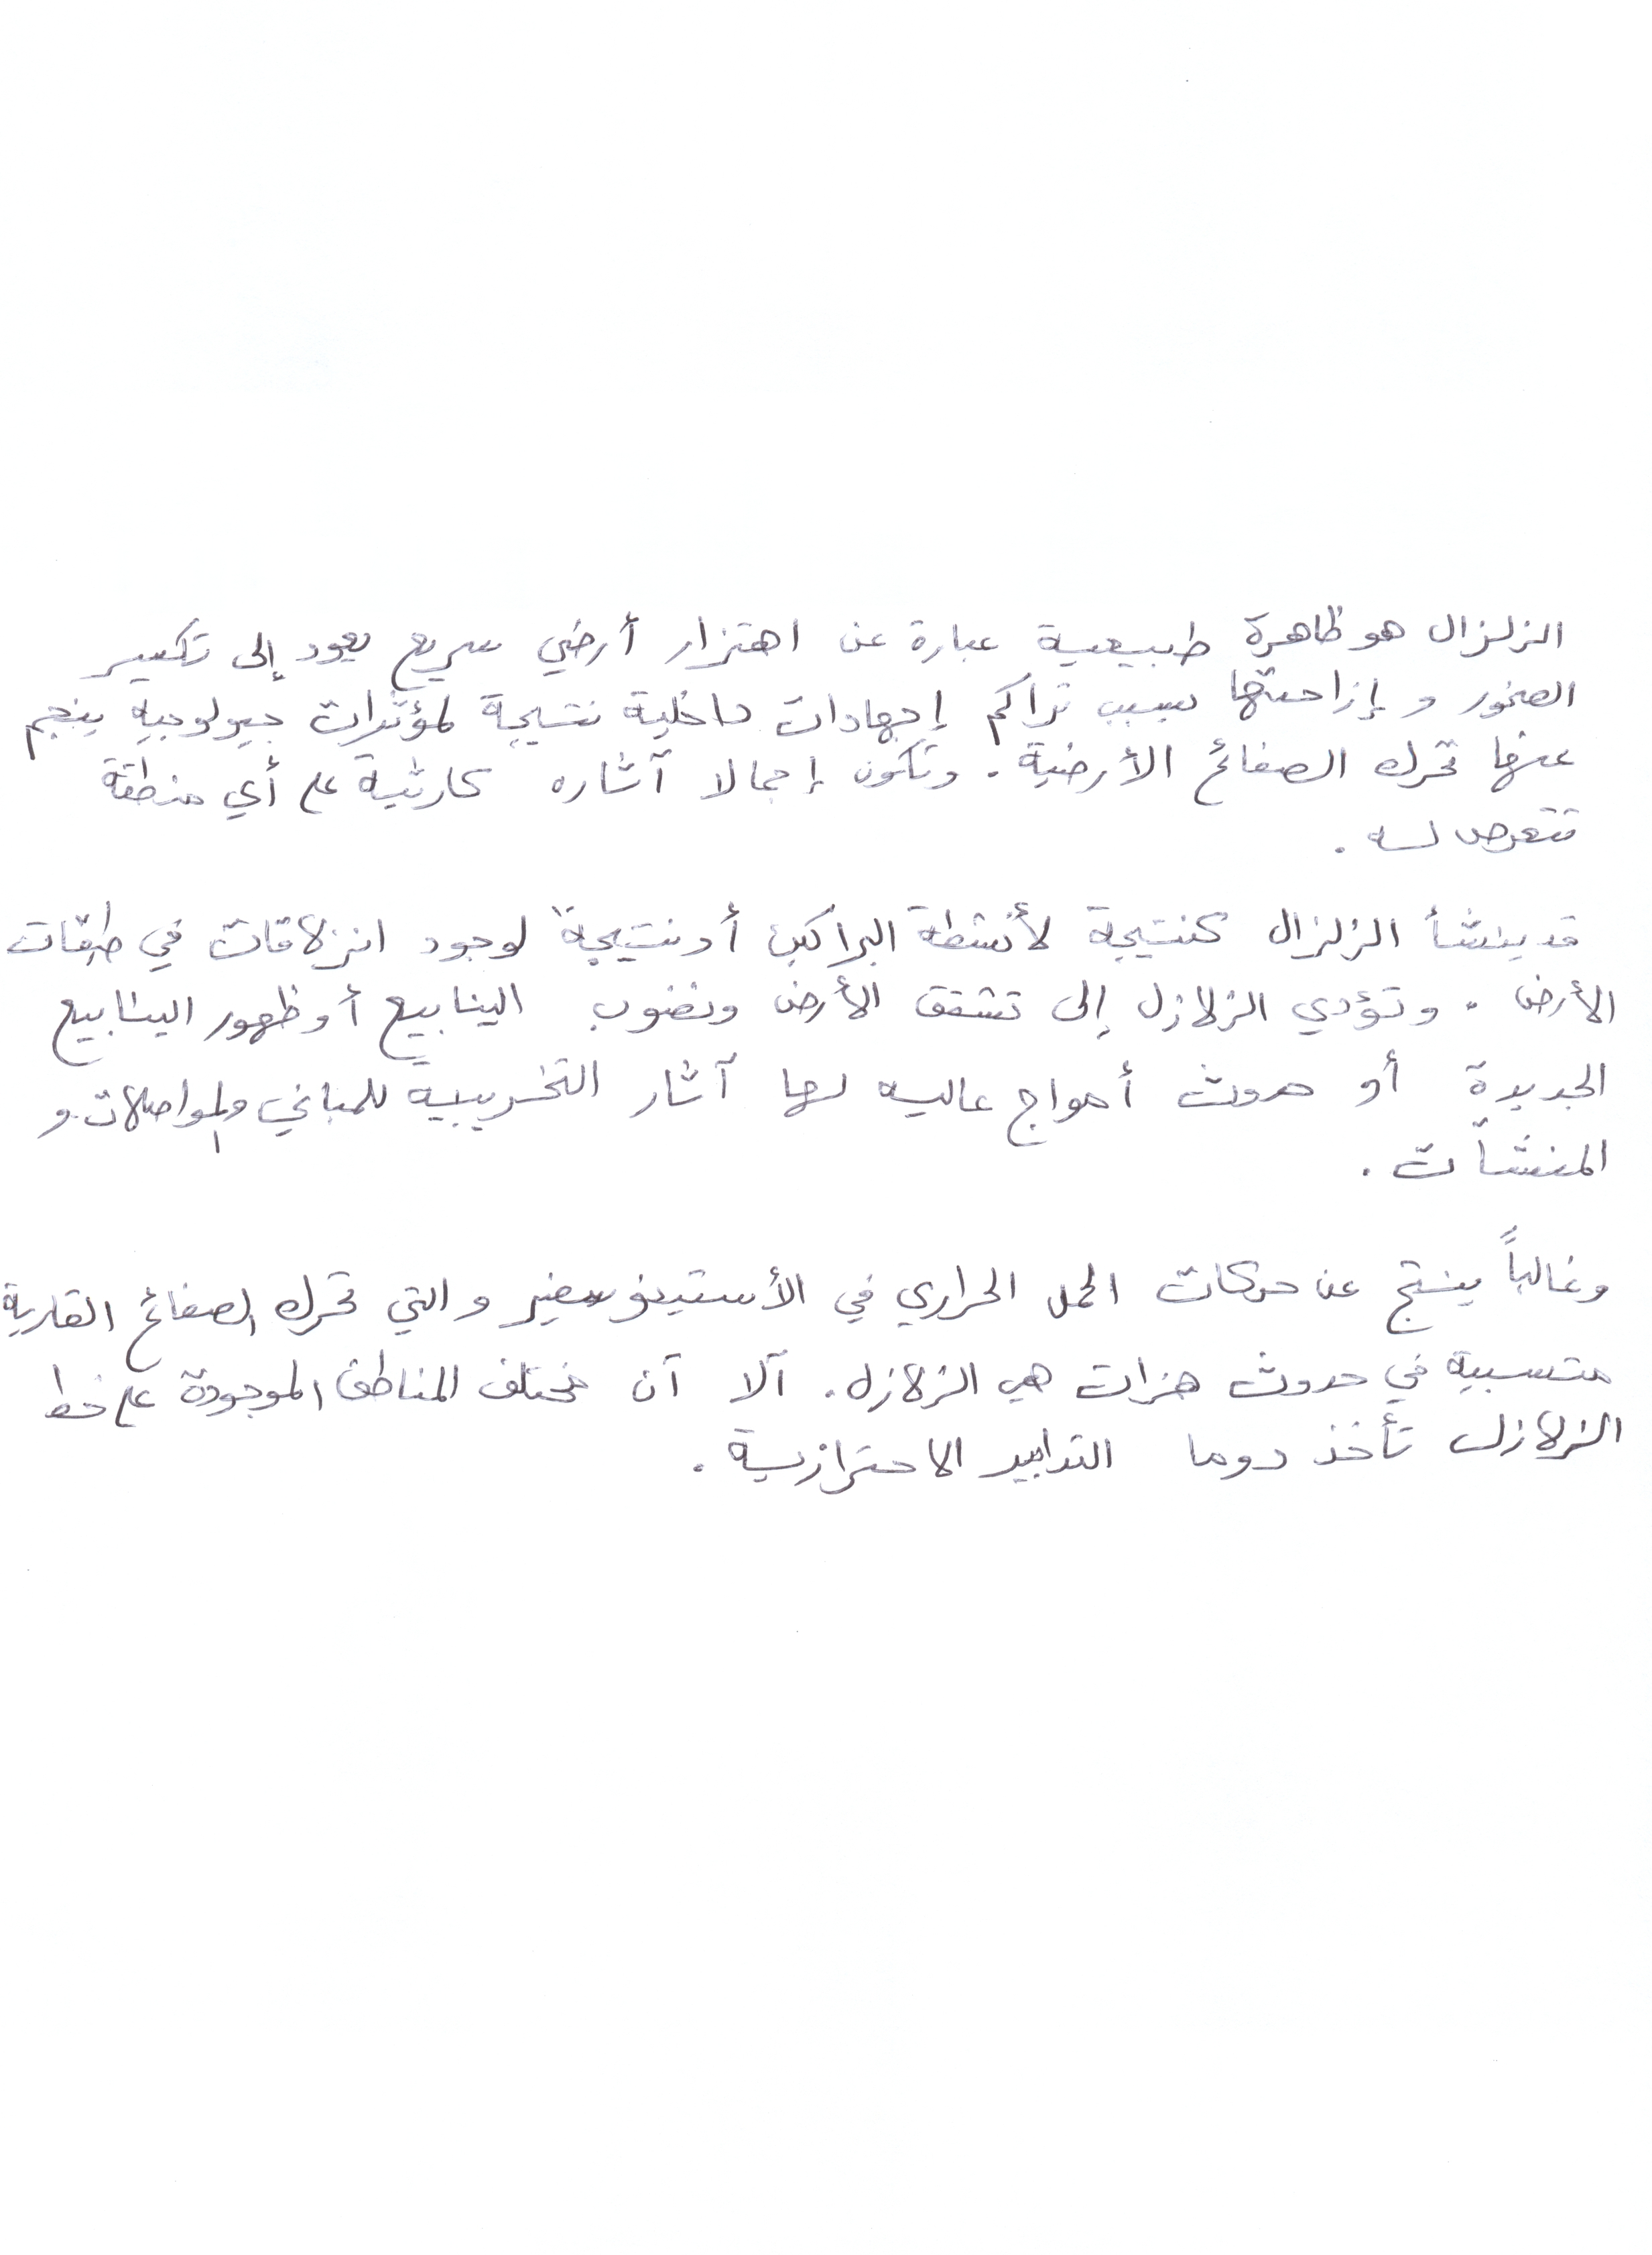 الزلزال هو ظاهرة طبيعية عبارة عن اهتزار أرضي سريع يعود إلى تكسير
الصخور و إزاحتها بسبب تراكم إجهادات داخلية نتيجة لمؤثرات جيولوجيه ينجم
عنها تحرك الصفائح الأرضية. وتكون إجمالا آثاره كارثية على أي منطقة
تتعرض له.
قد ينشأ الزلزال كنتيجة لأنشطة البراكين أو نتيجة لوجود انزلاقات في طبقات
الأرض. وتؤدي الزلازل إلى تشقق الأرض ونضوب الينابيع أو ظهور الينابيع
الجديدة أو حدوث أمواج عاليه لها آثار التخريبيه للمباني والمواصلات و
المنشآت.
وغالباً ينتج عن حركات الحمل الحراري في الأستينوسفير والتي تحرك الصفائح القارية
متسببية في حدوث هزات هي الزلازل. آلا آن مختلف المناطق الموجودة على خط
الزلازل تأخذ دوما التدابير الاحترازية.